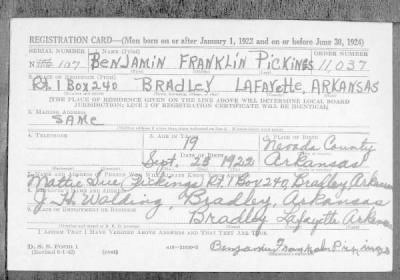 REGISTRATION CARD—(Men born on or after January 1, 1922 and on or before June 30, 1924)
SERIAL NUMBER 1. NAME (Print) ORDER NUMBER
N 107 BENJAMIN FRANKLIN PICKINGS 11,037
(First) (Middle) (Last)
2. PLACE OF RESIDENCE (Print)
Rt. 1 Box 240 BRADLEY LAFAYETTE, ARKANSAS
[THE PLACE OF RESIDENCE GIVEN ON THE LINE ABOVE WILL DETERMINE LOCAL BOARD
JURISDICTION; LINE 2 OF REGISTRATION CERTIFICATE WILL BE IDENTICAL]
3. MAILING ADDRESS
SAME
4. TELEPHONE 5. AGE IN YEARS 6. PLACE OF BIRTH
19 Nevada County
Sept. 23 1922 Arkansas
7. NAME AND ADDRESS OF PERSON WHO WILL ALWAYS KNOW YOUR ADDRESS
Mattie Sue Pickings Rt. 1 Box 240, Bradley Arkansas
8. EMPLOYER'S NAME AND ADDRESS
J. H. Walding, Bradley, Arkansas
9. PLACE OF EMPLOYMENT OR BUSINESS
Bradley Lafayette Arkansas
I AFFIRM THAT I HAVE VERIFIED ABOVE ANSWERS AND THAT THEY ARE TRUE.
D. S. S. Form 1
Benjamin Franklin Pickings